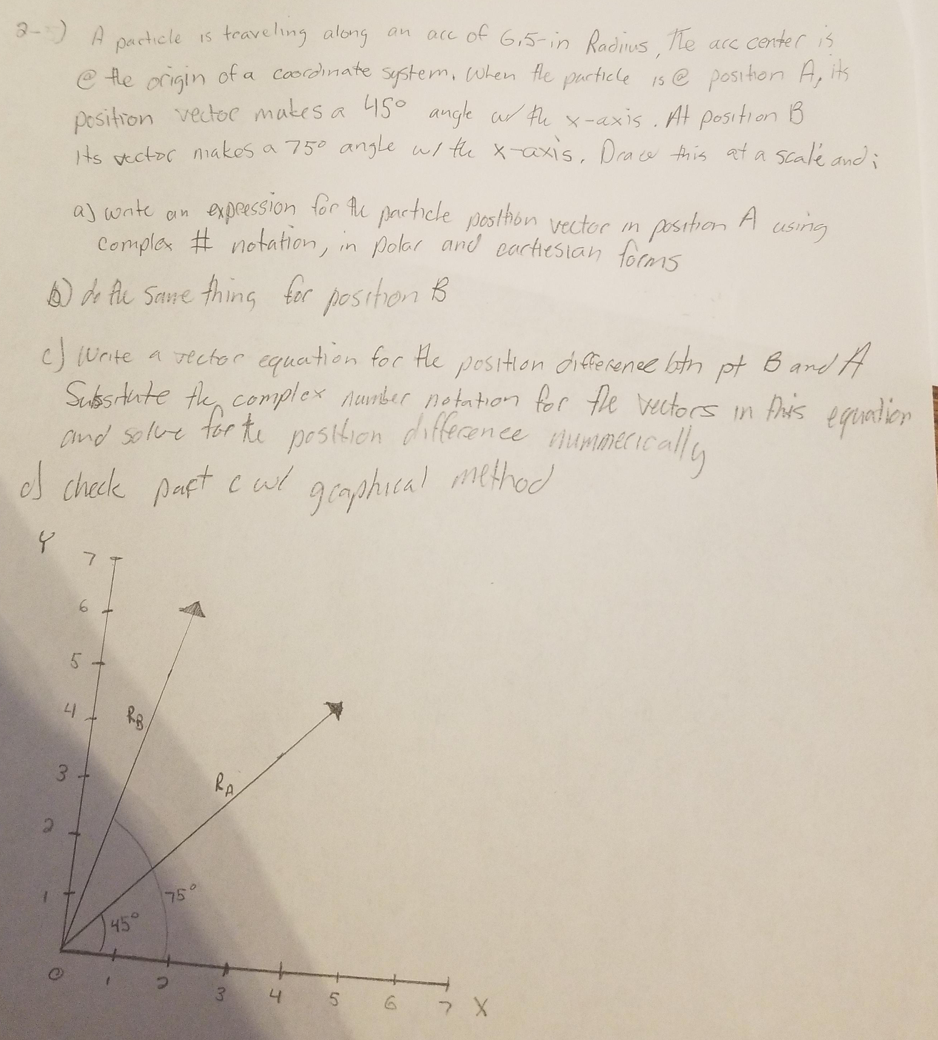 2-  ) A particle is traveling along an arc of 6.5-in Radius, The arc center is
@ the origin of a coordinate system. When the particle is @ position A, its
position vector makes a 45° angle w/ the x-axis. At position B
Its vector makes a 75° angle w/ the x-axis. Draw this at a scale and:
a) write an expression for the particle position vector in position A using
complex # notation, in polar and cartiesian forms
b) do the same thing for position B
c) Write a vector equation for the position difference btn pt B and A
Substitute the complex number notation for the vectors in this equation
and solve for the position difference nummerically
d) check part c w/ graphical method
Y
7
6
5
4
RB
3
RA
2
1
75°
45°
0
1
2
3
4
5
6
7
X